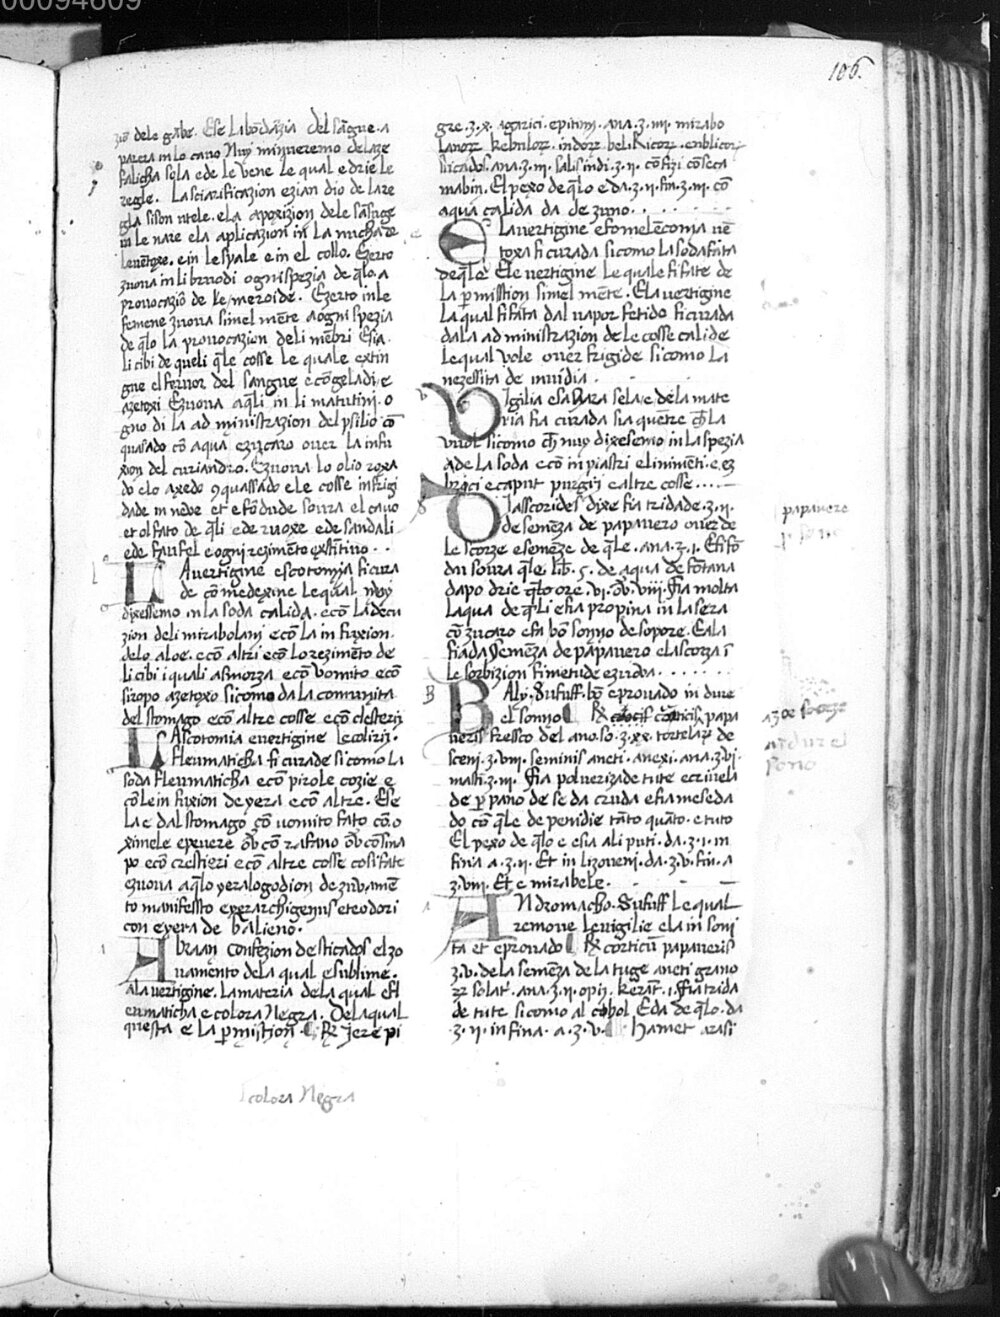 00094609
106.
zio dele gābe. Ese labōdāzia del sāgue. a
parera in lo cavo Nuy minueremo de la ze
falicha sola e de le vene le qual e drie le
regle. La sciarificazion ezian dio de la re
gla si son utele. e la aposizion dele sāsuge
in le nare e la aplicazion in la nucha de
le ventoxe. e in le spale e in el collo. Ezerto
zuova in li bruodi ogni spezia de q̄lo. a
provocaziō de le meroide. Ezerto in le
femene zuova simel mēte a ogni spezia
de q̄lo la provocazion deli mēbri Esia.
li cibi de queli q̄le cosse le quale extin
gue el fervor del sangue e cōgeladi e
azetoxi Ezuova a q̄li in li matutini. o
gno di la administrazion del psilio cō
quasado cō aqua e zucaro over la infu
xion del curiandro. Ezuova lo olio roxa
do e lo axedo 9quassado e le cosse infrigi
dade in neve et efōdude sovra el cavo
et olfato de q̄li e de ruoxe e de sandali
e de faufel e ogni rezimēto exstītivo. .
LA vertigine e scotomia fi cura
de cō medexine le qual nuy
dixessemo in la soda calida. e cō la decu
zion deli mirabolani e cō la infuxion.
delo aloe. e cō altri e cō lo rezimēto de
li cibi i quali asmorza e cō vomito e cō
siropo azetoxo si como da la comunita
del stomago e cō altre cosse e cō clesterij
LA scotomia e vertigine le colirij.
fleumaticha fi curade si como la
soda fleumaticha e cō pirole cozie e
cō le infuxion de yera e cō altre. Ese
la e dal stomago cō vomito fato cō. o
ximele e pevere ov̄ cō rafano ov̄ cō sina
po e cō crestieri e cō altre cosse cosi fate
ezuova a q̄lo yeralogodion de zuvamē
to manifessto e yerarchigenis e teodori
con e yera de Galieno.
ABraan Confezion de sticados el zo
vamento dela qual e sublime.
a la vertigine. La materia dela qual e fl
eumaticha e colora Negra. De la qual
questa e la p̄mistion. ℞ Jere pi
colora Negra
gre. ʒ. x. agarici. epitimi. ana. ʒ. iiij. mirabo
lanoꝝ kebuloꝝ. indoꝝ. bel. Ricoꝝ. enblicoꝝ
sticados. ana. ʒ. iij. salis indi. ʒ. ii. cōfizi cō seca
niabin. El pexo de q̄lo e da. ʒ. ii. fin. ʒ. iij. cō
aqua calida da dezuno. . . . . .
E la vertigine e fo melēconia vē
toxa fi curada si como la soda fata
de q̄le. E le vertigine le quale fi fate de
la p̄mistion simel mēte. E la vertigine
la qual fi fata dal vapor fetido fi curada
da la administrazion de le cosse calide
le qual vole over frigide si como la
nezessita de invidia.
VIgilia e saHara se la e dela mate
ria fia curada sia quēre ch̄ la
vuol si como ch̄ nuy dixesemo in la spezia
a de la soda e cō inpiastri e linimēti. e ez
broci e caput purgij e altre cosse. . . .
DIasscorides dixe fia tridade. ʒ. ii.
de semēza de papavero over de
le scorze e semēze de q̄le. ana. ʒ. i. E fi fō
du sovra q̄le lib̄. 5. de aqua de fōtana
dapo drie q̄to ore. vi. ov̄. viii. fia molta
laqua de q̄li e fia propina in la sera
cō zucaro e fa bō sonno de sopore. E a la
fiada semēza de papavero e la scorza ī
le sorbizion fi metude e zuoda. . . . . .
papavere
BAly. Sufuff. bō e provado in dure
el sonno ℞ corticis papa
veris fressco del ano. so. ʒ. xx. tortelaꝝ de
sceni. ʒ. viii. seminis aneti. anexi. ana. ʒ. vi.
masti. ʒ. iii. fia polverizade tute e crivela
de p̄ pano de seda cruda e fia meseda
do cō q̄le de penidie tāto quāto. e tuto
El pexo de q̄lo e e sia ali puti. da. ʒ. i. in
fina a. ʒ. ii. Et in li zoveni. da. ʒ. v. fin. a
ʒ. viii. Et e mirabele.
sono
ANdromacho. Sufuff le qual
remove le vigilie e la in soni
ta et e provado ℞ corticū papaveris
ʒ. v. de la semēza de latuge aneti grano
ꝝ solat. ana. ʒ. ii. opij. kerat. i. fia trida
de tute si como al cohol E da de q̄lo. da
ʒ. ii. in fina. a. ʒ. v. hamet arasi